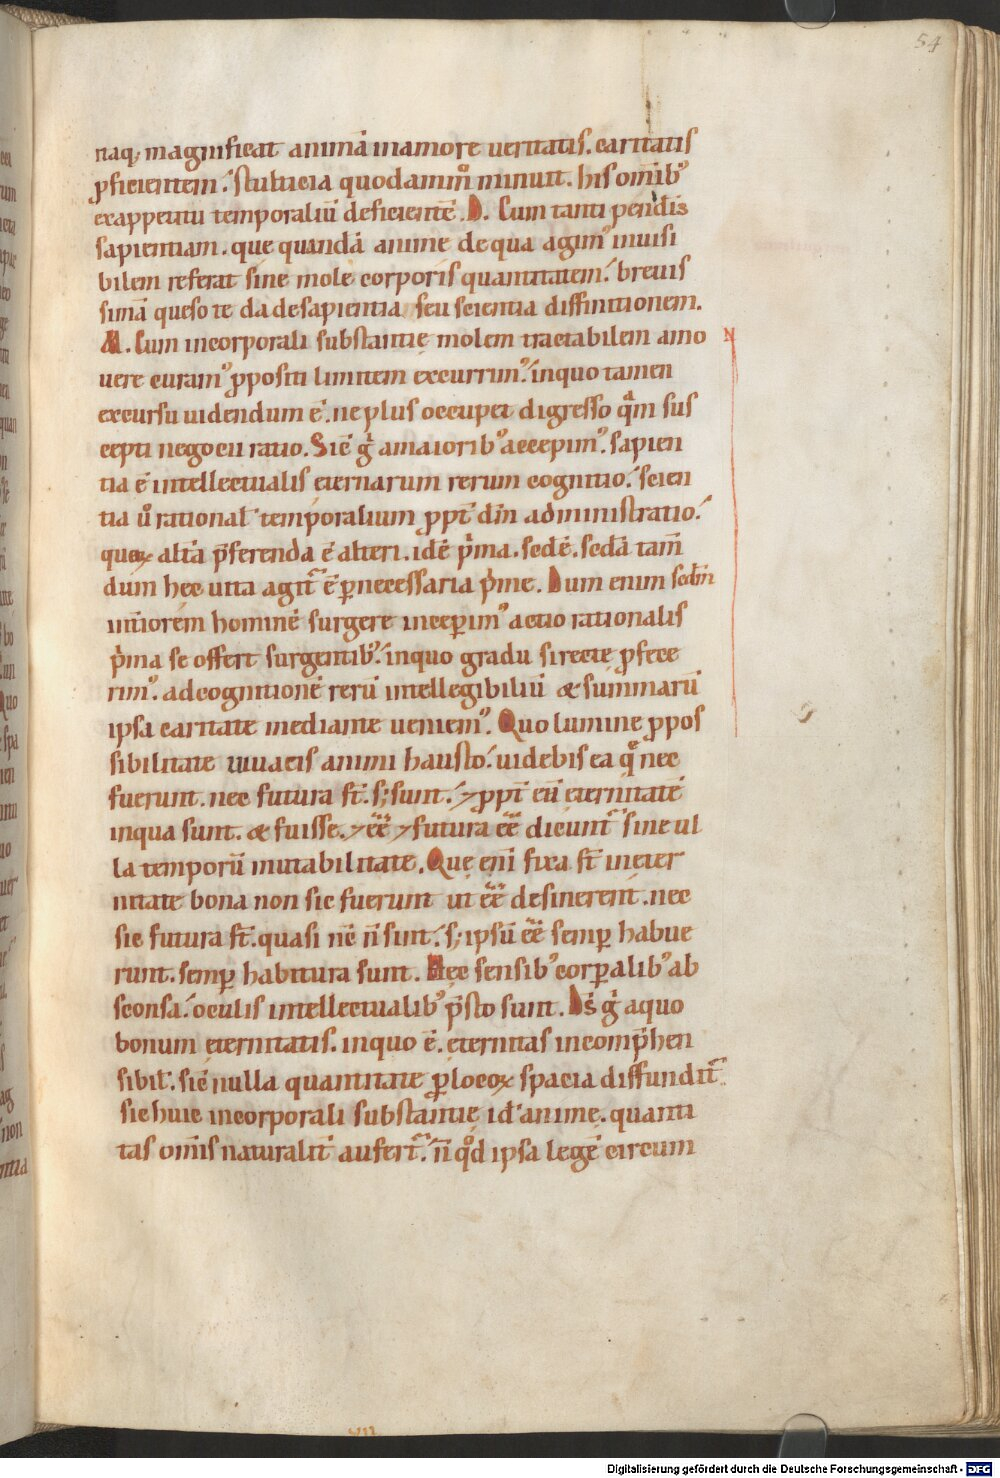 54
naq; magnificat animā inamore ueritatis. caritatis
ꝓficientem. stulticia quodammͦ minuit. hisomībꝰ
exappetitu temporaliū deficientē. D. Cum tanti pendis
sapientiam. que quandā anime dequa agimꝰ inuisi
bilem referat sine mole corporis quantitatem. breuis
simā queso te da desapientia seu scientia diffinitionem.
M. Cum incorporali substantię molem tractabilem amo
uere curamꝰ ꝓpositi limitem excurrimꝰ. inquo tamen
excursu uidendum ē. ne plus occupet digressio quā sus
cepti negocii ratio. Sic g̊ amaioribꝰ accepimꝰ. sapien
tia ē intellectualis eternarum rerum cognitio. scien
tia u̓o rational̓ temporalium ꝓpt̄ dn̄i administratio.
quoꝝ alt̓a p̄ferenda ē alteri. idē p̓ma. sedē. sedā tam̄
dum hec uita agit̃ ē ꝑnecessaria p̓me. Dum enim sedm̄
int̓iorem hominē surgere inceꝑimꝰ actio rationalis
p̓ma se offert surgentibꝰ. inquo gradu sirecte ꝓfece
rimꝰ. adcognitionē rerū intellegibiliū & summarū
ipsa caritate mediante ueniemꝰ. Quo lumine ꝓpos
sibilitate uiuacis animi hausto. uidebis ea q̄ nec
fuerunt. nec futura st̄. s; sunt. ⁊ ꝓpt̄ eū eternitatē
inqua sunt. & fuisse. ⁊ ēē ⁊ futura ēē dicunt̃ sine ul
la temporū mutabilitate. Quę enī fixa st̄ ineter
nitate bona non sic fuerunt ut ēē desinerent. nec
sic futura st̄. quasi nc̄ n̄ sint. s; ipsū ēē semꝑ habue
runt. semꝑ habitura sunt. Hec sensibꝰ corꝑalibꝰ ab
sconsa. oculis intellectualibꝰ p̄sto sunt. Ds̄ g̊ aquo
bonum eternitatis. inquo ē. eternitas incomp̄hen
sibil̓. sic nulla quantitate ꝑlocoꝝ spacia diffundit̃.
sic huic incorporali substantię id̄ anime. quanti
tas om̄is naturalit̓ aufert̃. n̄ qd̓ ipsa legē circum
VII
Digitalisierung gefördert durch die Deutsche Forschungsgemeinschaft - DFG